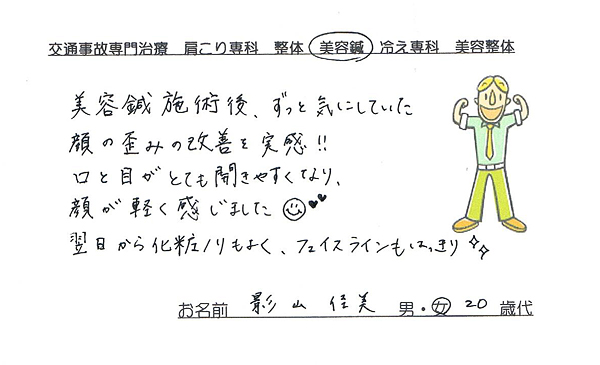 交通事故専門治療　肩こり専科　整体　美容鍼　冷え専科　美容整体
美容鍼施術後、ずっと気にしていた
顔の歪みの改善を実感!!
口と目がとても開きやすくなり、
顔が軽く感じました
翌日から化粧ノリもよく、フェイスラインもはっきり
お名前　影山　佳美　男・女　20　歳代